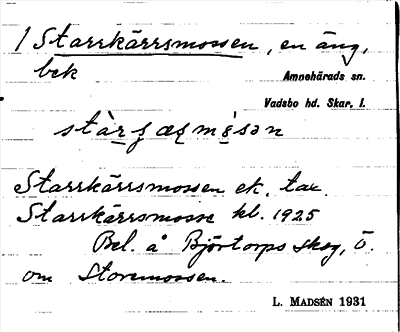 1 Starrkärrsmossen, en äng,
bek
Amnehärads sn.
Vadsbo hd. Skar. l.
Starrkärrsmossen ek. tax
Starrkärrsmosse kl. 1925
Bel. å Björtorps skog, ö.
om Storemossen.
L. MADSÉN 1931